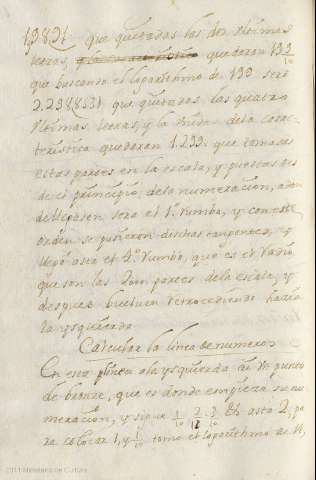 19891 que quitadas las dos ultimas
letras, quedaran 199/10
que buscando el logarithmo de 199 será
2.2988531 que quitadas las quatro
ultimas letras, y la unidad de la carac-
teristica quedaran 1.299. que tomadas
estas partes en la escala, y puestas des
de el principio, de la numeracion, adon
de llegasen sera el 1º rumbo, y con este
orden se pusieron dichas tangentes, y
llegó asta el 4º rumbo, que es el radio
que son las partes de la escala, y
despues buelven retrocediendo hacia
la ysquierda
Calcular la linea de numeros
En esta a la ysquierda ai un punto
de bronze, que es donde empieza su nu
meracion, y sigue 1/10 2/10 3/10 &c asta 2, pa
ra colocar 1, y 1/10 tomo el logarithmo de 11,
2011 Ministerio de Cultura